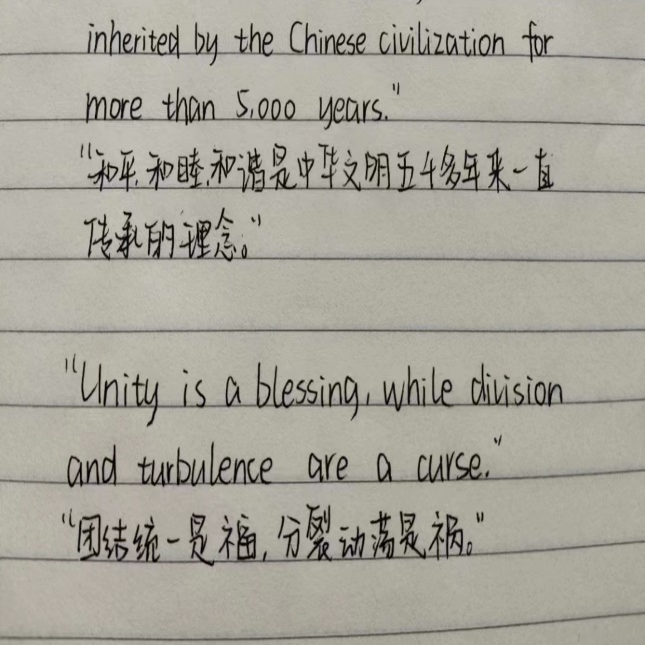 inherited by the Chinese civilization for
more than 5,000 years."
"和平,和睦,和谐是中华文明五千多年来一直
传承的理念。"
"Unity is a blessing, while division
and turbulence are a curse."
"团结统一是福,分裂动荡是祸。"